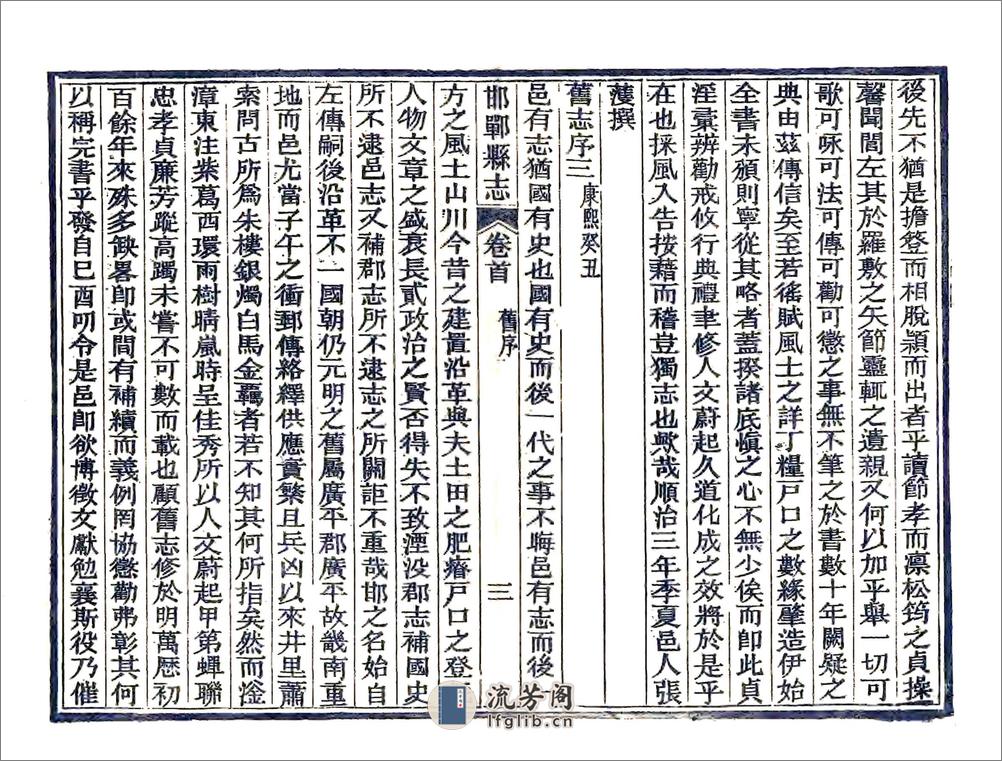 後先不猶是擔簦而相脫潁而出者乎讀節孝而凛松筠之貞操
馨聞閭左其於羅敷之矢節靈輒之遺親又何以加乎舉一切可
歌可咏可法可傳可勸可懲之事無不筆之於書數十年闕疑之
典由茲傳信矣至若徭賦風土之詳丁糧戸口之數緣肇造伊始
全書未頒則寧從其略者蓋揆諸底慎之心不無少俟而卽此貞
淫彙辨勸戒攸行典禮聿修人文蔚起久道化成之效將於是乎
在也採風入告按藉而稽豈獨志也歟哉順治三年季夏邑人張
濩撰
舊志序三 康熙癸丑
邑有志猶國有史也國有史而後一代之事不晦邑有志而後一
邯鄲縣志 卷首 舊序 三
方之風土山川今昔之建置沿革與夫土田之肥瘠戸口之登
人物文章之盛衰長貳政治之賢否得失不致湮没郡志補國史
所不逮邑志又補郡志所不逮志之所關詎不重哉邯之名始自
左傳嗣後沿革不一國朝仍元明之舊屬廣平郡廣平故畿南重
地而邑尤當子午之衝郵傳絡繹供應實繁且兵凶以來井里蕭
索問古所爲朱樓銀燭白馬金羈者若不知其何所指矣然而滏
漳東注紫葛西環雨樹晴嵐時呈佳秀所以人文蔚起甲第蟬聯
忠孝貞廉芳蹤高躅未嘗不可數而載也顧舊志修於明萬歷初
百餘年來殊多缺畧卽或間有補續而義例罔協懲勸弗彰其何
以稱完書乎發自己酉叨令是邑卽欲博徵文獻勉襄斯役乃催
流芳阁
lfglib.cn